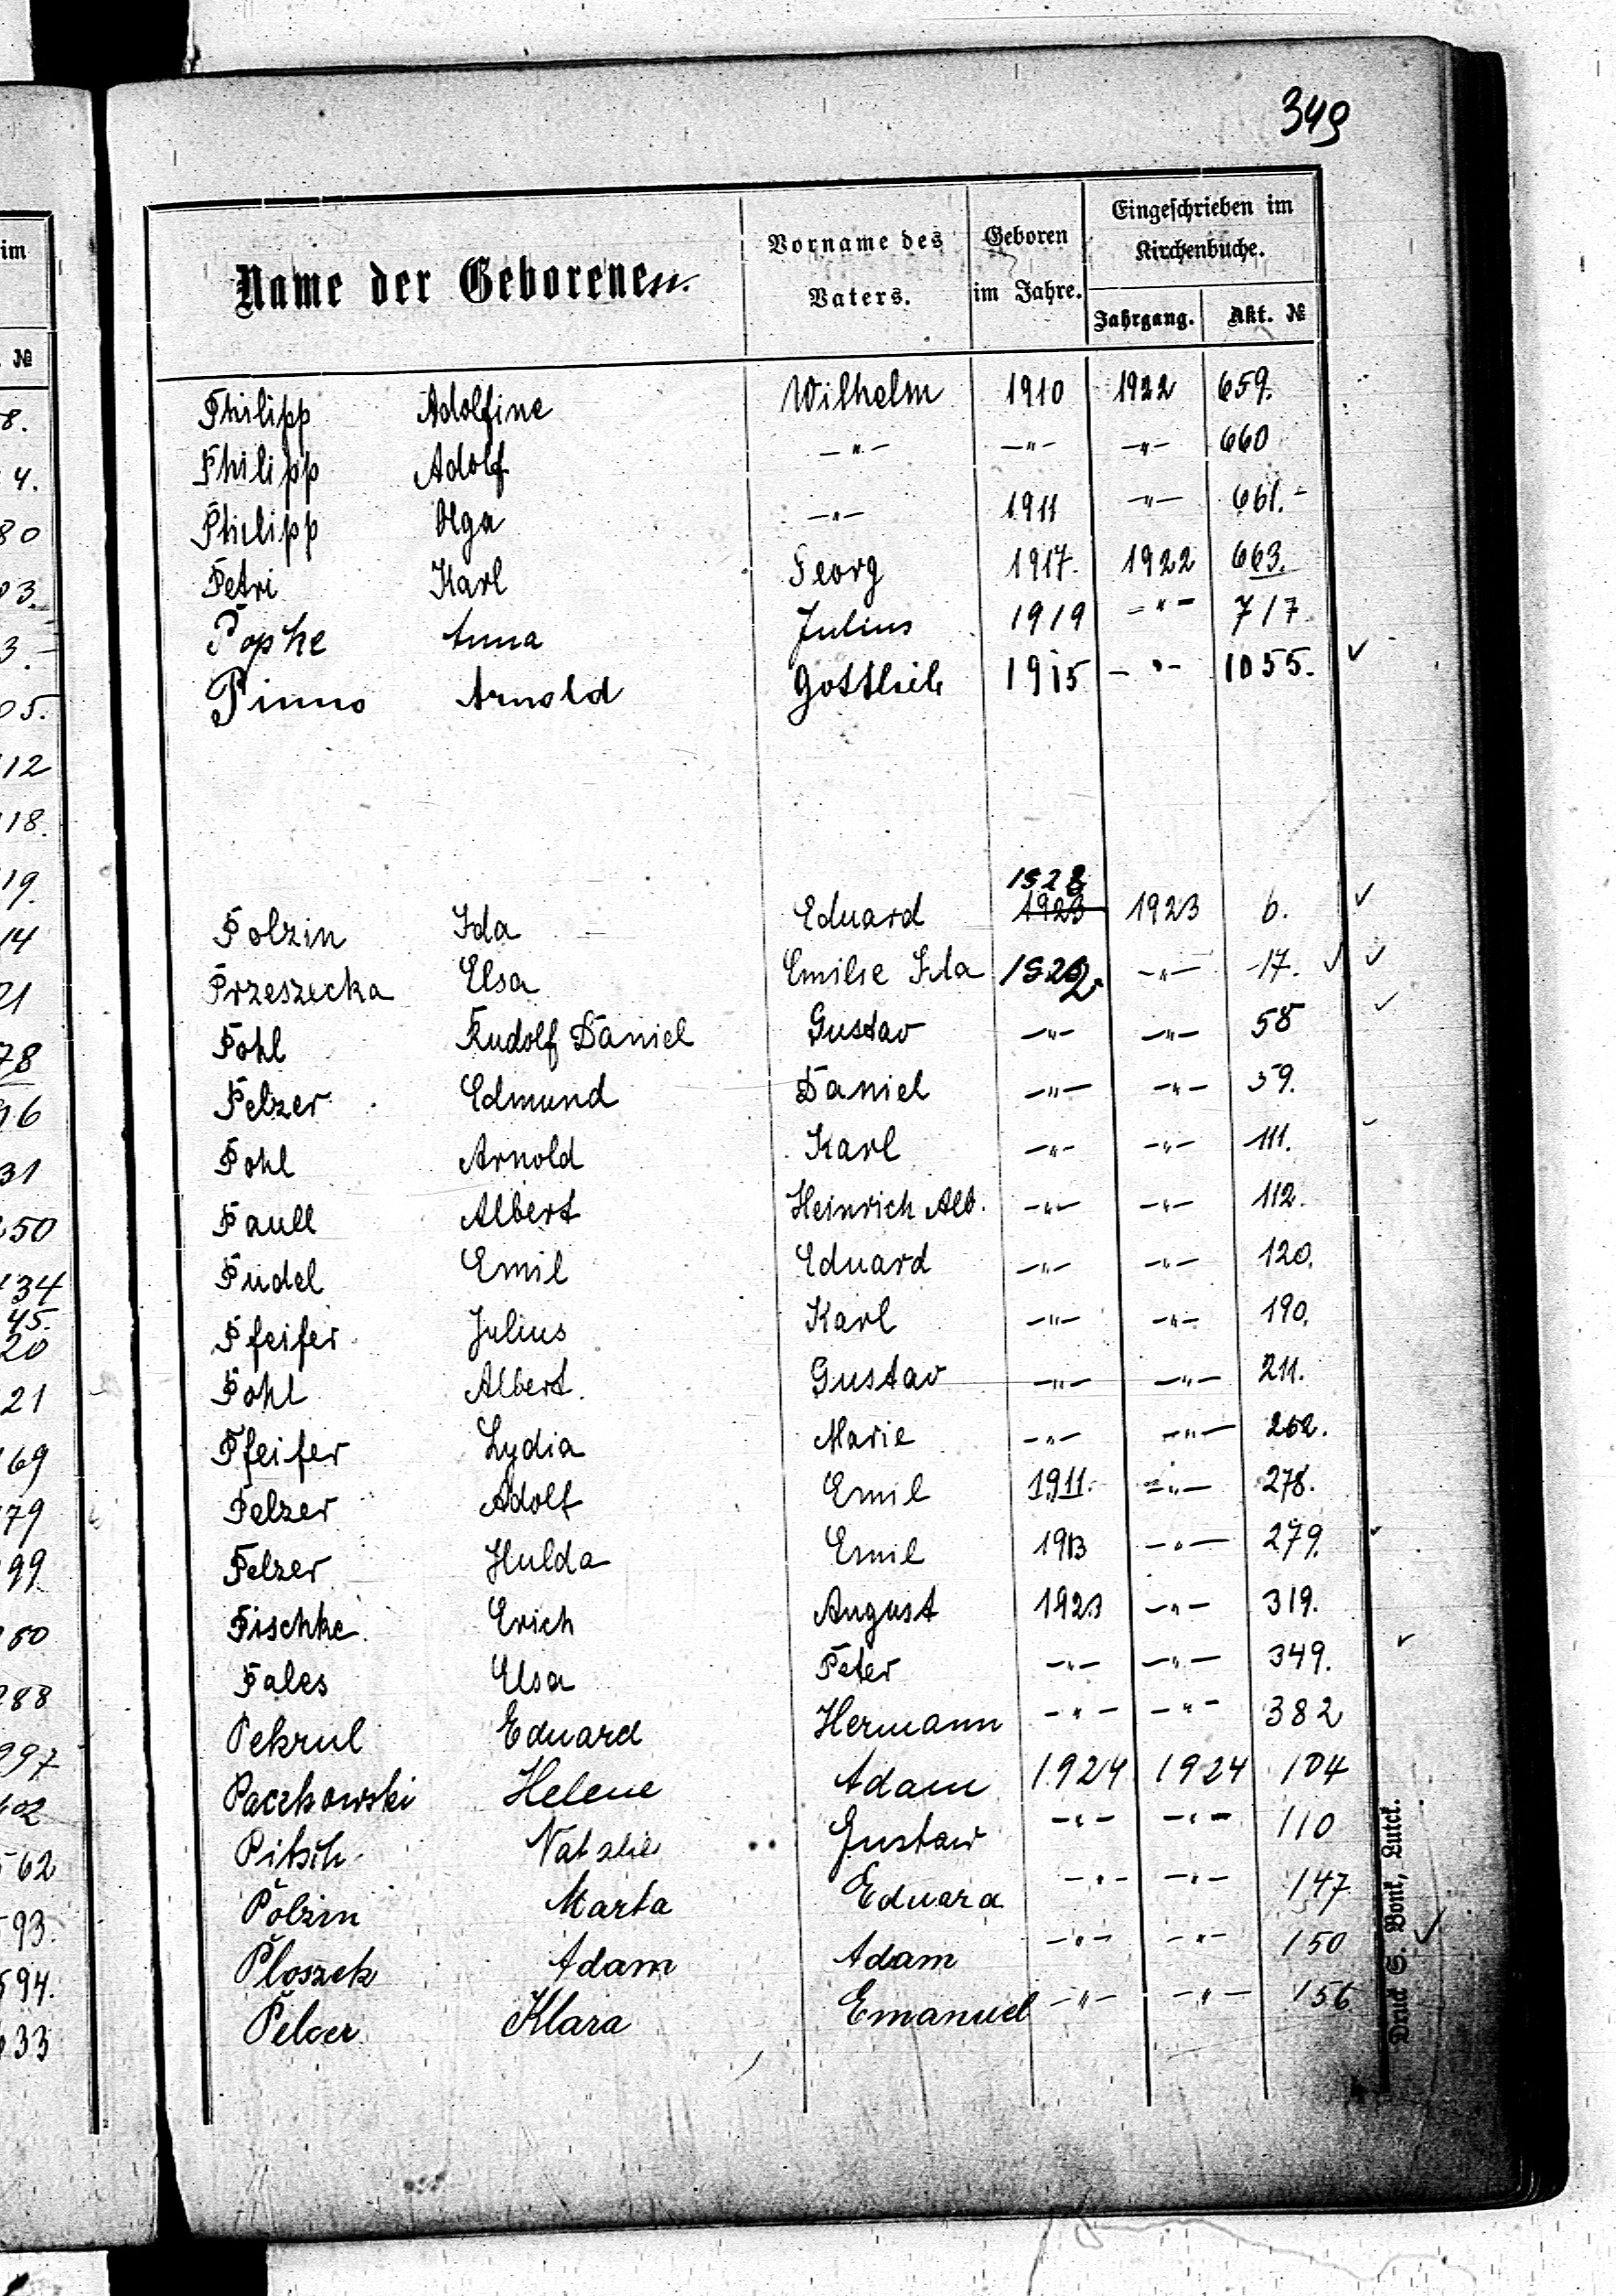 349
Name der Geborenen.
Vorname des Vaters.
Geboren im Jahre.
Eingeschrieben im Kirchenbuche.
Jahrgang. Akt. №
Philipp Adolfine Wilhelm 1910 1922 659.
Philipp Adolf —"— —"— —"— 660
Philipp Olga —"— 1911 —"— 661.-
Petri Karl Georg 1917. 1922 663.
Pophe Anna Julius 1919 —"— 717.
Pinno Arnold Gottlieb 1915 —"— 1055. ✓
1922
Polzin Ida Eduard 1923 1923 6. ✓
Przeszecka Elsa Emilie Ida 1922. —"— 17. ✓ ✓
Pohl Rudolf Daniel Gustav —"— —"— 58 ✓
Pelzer Edmund Daniel —"— —"— 59.
Pohl Arnold Karl —"— —"— 111.
Paull Albert Heinrich Alb. —"— —"— 112.
Pudel Emil Eduard —"— —"— 120.
Pfeifer Julius Karl —"— —"— 190.
Pohl Albert. Gustav —"— —"— 211.
Pfeifer Lydia Marie —"— —"— 262.
Pelzer Adolf Emil 1911. —"— 278.
Pelzer Hulda Emil 1913 —"— 279.
Pischke Erich August 1923 —"— 319.
Pales Elsa Peter —"— —"— 349. ✓
Pekrul Eduard Hermann —"— —"— 382
Paczkowski Helene Adam 1924 1924 104
Pitsch Natalie Gustaw —"— —"— 110
Polzin Marta Eduard —"— —"— 147
Ploszek Adam Adam —"— —"— 150 ✓
Pelcer Klara Emanuel —"— —"— 156
Druck S. Bonk, Lutck.
im
№
8.
4.
80
03.
3.-
05.
112
118.
19.
14
21
78
96
31
250
134
45.
20
21
169
179
99
180
288
997
102
562
593.
594.
633